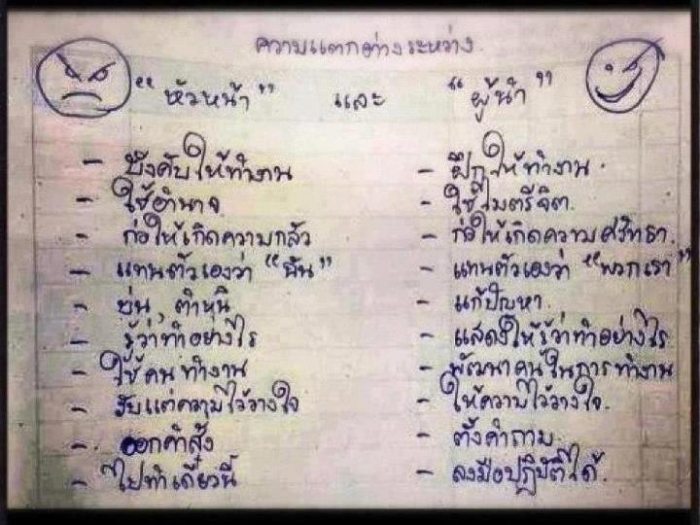 ความแตกต่างระหว่าง
"หัวหน้า" และ "ผู้นำ"
- บังคับให้ทำงาน
- ใช้อำนาจ
- ก่อให้เกิดความกลัว
- แทนตัวเองว่า "ฉัน"
- ขุ่น, ตำหนิ
- รู้ว่าทำอย่างไร
- ใช้คนทำงาน
- รับแต่ความไว้วางใจ
- ออกคำสั่ง
- ไปทำเดี๋ยวนี้
- ฝึกให้ทำงาน
- ใช้ไมตรีจิต
- ก่อให้เกิดความศรัทธา
- แทนตัวเองว่า "พวกเรา"
- แก้ปัญหา
- แสดงให้รู้ว่าทำอย่างไร
- พัฒนาคนในการทำงาน
- ให้ความไว้วางใจ
- ตั้งคำถาม
- ลงมือปฏิบัติได้